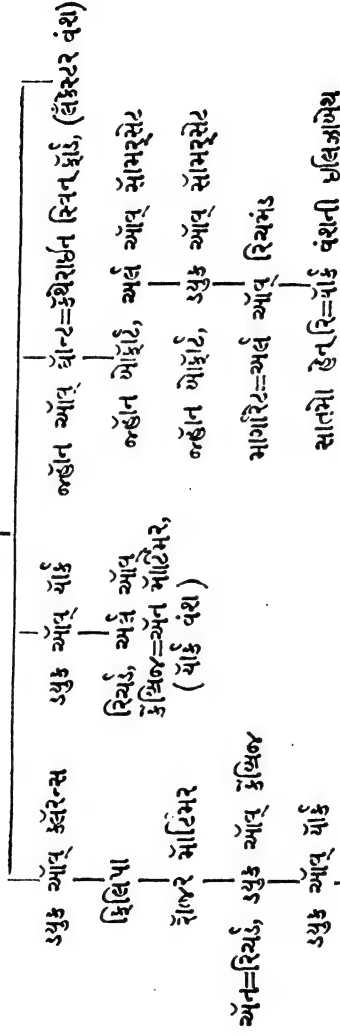 ડ્યુક ઑવ ક્લૅરન્સ
ફિલિપા
રૉજર મૉર્ટિમર
ઍન=રિચર્ડ, ડ્યુક ઑવ કેમ્બ્રિજ
ડ્યુક ઑવ યૉર્ક
ડ્યુક ઑવ યૉર્ક
રિચર્ડ, અર્લ ઑવ
કેમ્બ્રિજ=ઍન મૉર્ટિમર,
(યૉર્ક વંશ)
જ્હૉન ઑવ ગૉન્ટ=કૅથેરાઈન સ્વિનફૉર્ડ, (લૅંકેસ્ટર વંશ)
જ્હૉન બોફૉર્ટ, અર્લ ઑવ સૉમરસેટ
જ્હૉન બોફૉર્ટ, ડ્યુક ઑવ સૉમરસેટ
માર્ગારેટ=અર્લ ઑવ રિચમંડ
સાતમો હેનરિ=યૉર્ક વંશની ઇલિઝાબેથ